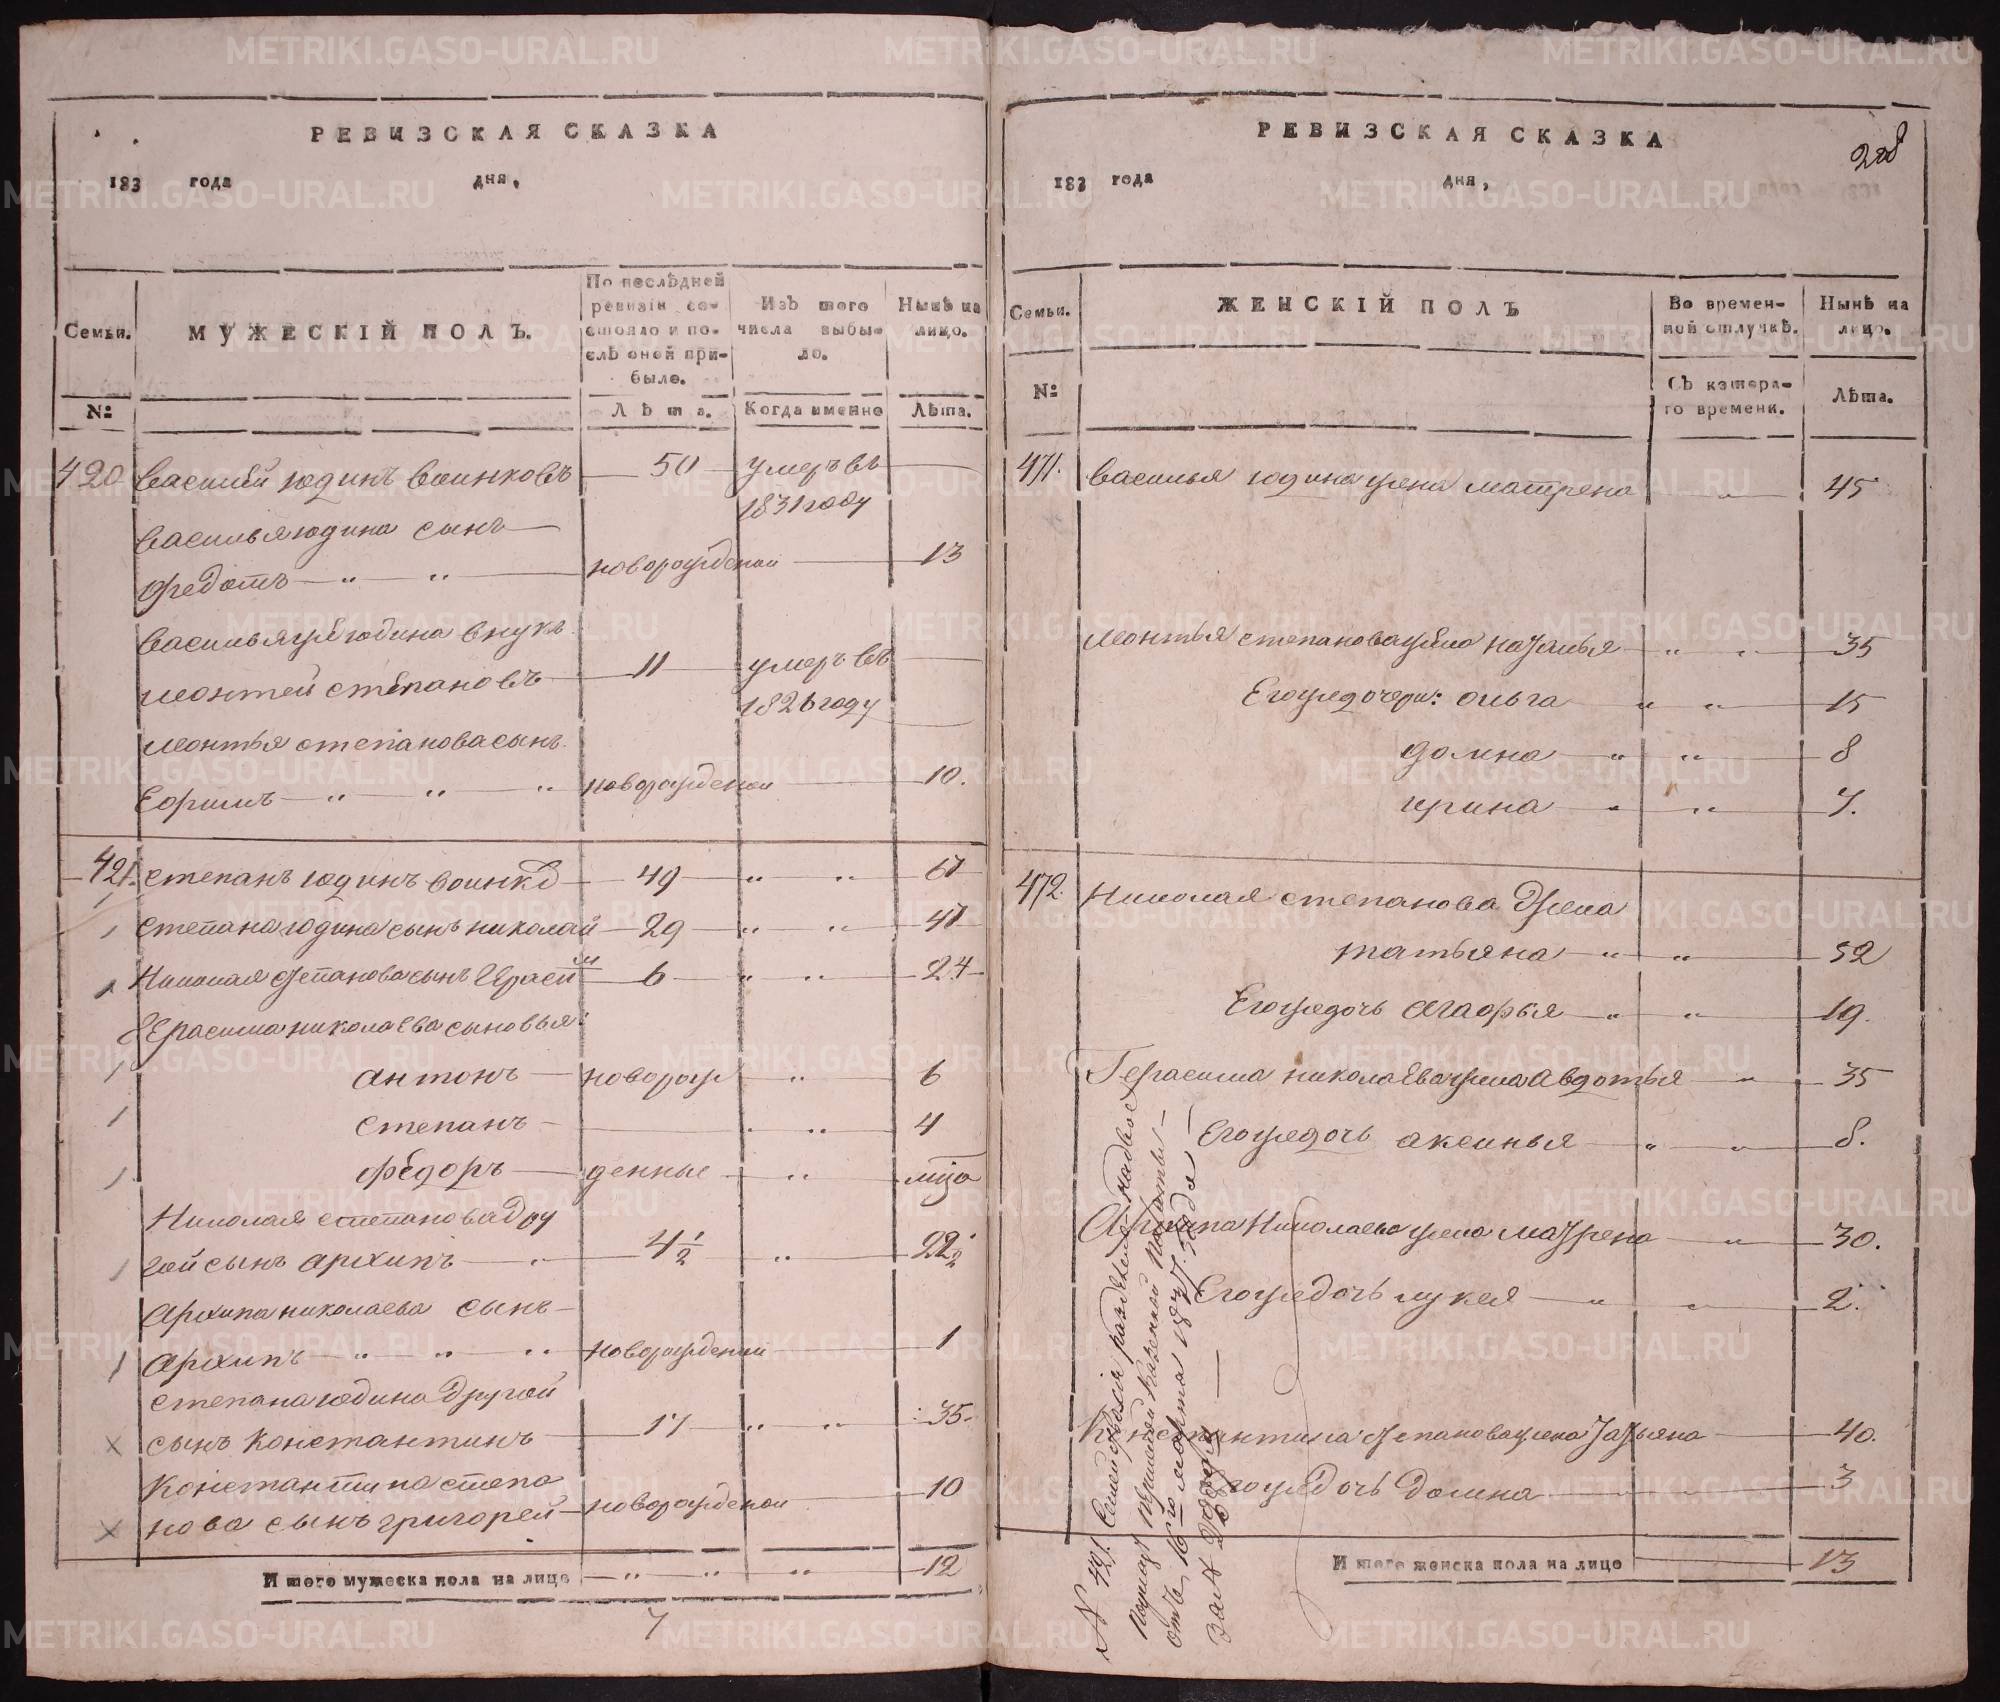 РЕВИЗСКАЯ СКАЗКА
183 года дня,
Семьи.
МУЖЕСКІЙ ПОЛЪ.
По послѣдней
ревизіи со-
стояло и по-
слѣ оной при-
было.
Изъ того
числа выбы-
ло.
Нынѣ на
лицо.
№
Лѣта.
Когда именно
Лѣта.
420 Василей Юдинъ Воинковъ 50 умеръ въ
1831 году
Васильа Юдина сынъ
Федотъ " " новорожденой 13
Васильяже Юдина внукъ
Монтей Степановъ 11 умеръ въ
1826 году
Монтья Степанова сынъ
Ефимъ " " " новорожденой 10.
421. Степанъ Юдинъ Воинкд 49 " " 67
Степана Юдина сынъ Николай 29 " " 47
Николая Степанова сынъ Герасим 6 " " 24
Герасима Николаева сыновья:
Антонъ новорож " 6
Степанъ " 4
Федоръ денные "
Николая Степанова дру
гой сынъ Архипъ 4 1/2 " 22 1/2
Архипа Николаева сынъ
Архипъ " " " новорожденій 1
Степана Юдина другой
сынъ Константинъ 17 " " 35.
Константина Степа
нова сынъ Григорей новорожденой 10
Итого мужеска пола на лицо " " " 12
7
РЕВИЗСКАЯ СКАЗКА
183 года дня,
Семьи.
ЖЕНСКІЙ ПОЛЪ
Во времен-
ной отлучкѣ.
Нынѣ на
лицо.
№
Съ котора-
го времени.
Лѣта.
471. Васильа Юдина жена Матрена " 45
Монтья Степанова жена Наталья " " 35
Егожедочери: Ольга " " 15
Домна " " 8
Ирина " " 7.
472. Николая Степанова Жена
Татьяна " " 52
Егожедочь Агафья " " 19.
Герасима Николаева жена Авдотья " 35
Егожедочь Аксинья " " 8.
Архипа Николаева жена Матрена " 30.
Егожедочь Лукея " " 2.
Константина Степанова жена Татьяна 40.
Егожедочь Домна " " 3
Итого женска пола на лицо 13
N 421. Семейство сіе раздѣлено надвое
Пермской Казенной Палаты
отъ 16го марта 1837. года
METRIKI.GASO-URAL.RU